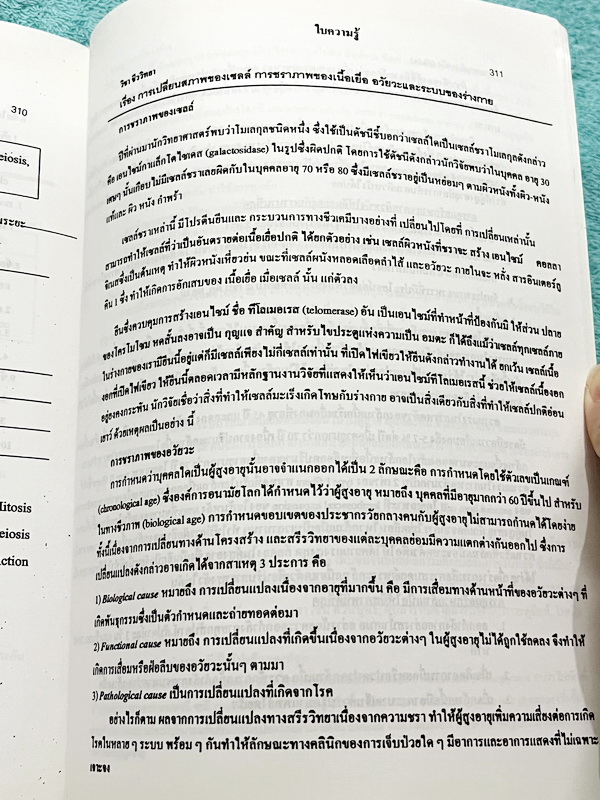 310
eiosis,
นระยะ
Mitosis
eiosis
action
ใบความรู้
วิชา ชีววิทยา
311
เรื่อง การเปลี่ยนสภาพของเซลล์ การชราภาพของเนื้อเยื่อ อวัยวะและระบบของร่างกาย
การชราภาพของเซลล์
ปีที่ผ่านมานักวิทยาศาสตร์พบว่าโมเลกุลชนิดหนึ่ง ซึ่งใช้เป็นดัชนีชี้บอกว่าเซลล์ใดเป็นเซลล์ชราโมเลกุลดังกล่าว
คือ เอนไซม์กาแล็กโตไซเดส (galactosidase) ในรูปซึ่งผิดปกติ โดยการใช้ดัชนีดังกล่าวนักวิจัยพบว่าในบุคคล อายุ 30
เศษๆ นั้นเกือบไม่มีเซลล์ชราเลยผิดกับในบุคคลอายุ 70 หรือ 80 ซึ่งมีเซลล์ชราอยู่เป็นหย่อมๆ ตามผิวหนังทั้งผิว-หนัง
แท้และ ผิว หนัง กำพร้า
เซลล์ชราเหล่านี้ มีโปรตีนยีนและ กระบวนการทางชีวเคมีบางอย่างที่ เปลี่ยนไปโดยที่ การเปลี่ยนเหล่านั้น
สามารถทำให้เซลล์ที่ว่าเป็นอันตรายต่อเนื้อเยื่อปกติ ได้ยกตัวอย่าง เช่น เซลล์ผิวหนังที่ชราจะ สร้าง เอนไซม์ คอลลา
จิเนสซึ่งเป็นต้นเหตุ ทำให้ผิวหนังเหี่ยวย่น ขณะที่เซลล์ผนังหลอดเลือดลำไส้ และอวัยวะ ภายในจะ หลั่ง สารอินเตอร์ลู
คิน 1 ซึ่ง ทำให้เกิดการอักเสบของ เนื้อเยื่อ เมื่อเซลล์ นั้น แก่ตัวลง
ยีนซึ่งควบคุมการสร้างเอนไซม์ ชื่อ ทีโลเมอเรส (telomerase) อัน เป็นเอนไซม์ที่ทำหน้าที่ป้องกันมิ ให้ส่วน ปลาย
ของโครโมโซม หดสั้นลงอาจเป็น กุญแจ สำคัญ สำหรับไขประตูแห่งความเป็น อมตะ ก็ได้ถึงแม้ว่าเซลล์ทุกเซลล์ภาย
ในร่างกายของเรามียีนนี้อยู่แต่ก็มีเซลล์เพียงไม่กี่เซลล์เท่านั้น ที่เปิดไฟเขียวให้ยีนดังกล่าวทำงานได้ ยกเว้น เซลล์เนื้อ
งอกที่เปิดไฟเขียว ให้ยีนนี้ตลอดเวลามีหลักฐานงานวิจัยที่แสดงให้เห็นว่าเอนไซม์ทีโลเมอเรสนี้ ช่วยให้เซลล์เนื้องอก
อยู่ยงคงกระพัน นักวิจัยเชื่อว่าสิ่งที่ทำให้เซลล์มะเร็งเกิดโทษกับร่างกาย อาจเป็นสิ่งเดียวกับสิ่งที่ทำให้เซลล์ปกติอ่อน
เยาว์ ด้วยเหตุผลเป็นอย่าง นี้
การชราภาพของอวัยวะ
การกำหนดว่าบุคคลใดเป็นผู้สูงอายุนั้นอาจจำแนกออกได้เป็น 2 ลักษณะคือ การกำหนดโดยใช้ตัวเลขเป็นเกณฑ์
(chronological age) ซึ่งองค์การอนามัยโลกได้กำหนดไว้ว่าผู้สูงอายุ หมายถึง บุคคลที่มีอายุมากกว่า 60 ปีขึ้นไป สำหรับ
ในทางชีวภาพ (biological age) การกำหนดขอบเขตของประชากรวัยกลางคนกับผู้สูงอายุไม่สามารถกำหนดได้โดยง่าย
ทั้งนี้เนื่องจากการเปลี่ยนทางด้านโครงสร้าง และสรีรวิทยาของแต่ละบุคคลย่อมมีความแตกต่างกันออกไป ซึ่งการ
เปลี่ยนแปลงดังกล่าวอาจเกิดได้จากสาเหตุ 3 ประการ คือ
1) Biological cause หมายถึง การเปลี่ยนแปลงเนื่องจากอายุที่มากขึ้น คือ มีการเสื่อมทางด้านหน้าที่ของอวัยวะต่างๆ ที่
เกิดพันธุกรรมซึ่งเป็นตัวกำหนดและถ่ายทอดต่อมา
2) Functional cause หมายถึง การเปลี่ยนแปลงที่เกิดขึ้นเนื่องจากอวัยวะต่างๆ ในผู้สูงอายุไม่ได้ถูกใช้ลดลง จึงทำให้
เกิดการเสื่อมหรือฝ่อลีบของอวัยวะนั้นๆ ตามมา
3) Pathological cause เป็นการเปลี่ยนแปลงที่เกิดจากโรค
อย่างไรก็ตาม ผลจากการเปลี่ยนแปลงทางสรีรวิทยาเนื่องจากความชรา ทำให้ผู้สูงอายุเพิ่มความเสี่ยงต่อการเกิด
โรคในหลาย ๆ ระบบ พร้อม ๆ กันทำให้ลักษณะทางคลินิกของการเจ็บป่วยใด ๆ มีอาการและอาการแสดงที่ไม่เฉพาะ
เจาะจง